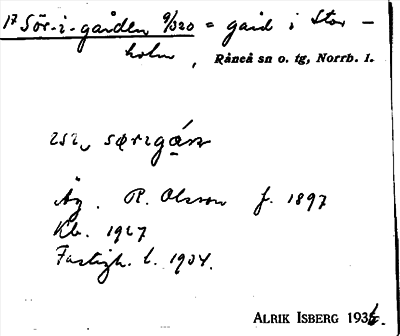 17 Sör-i-gården 9/320 = gård i Stor-
holm, Råneå sn o. tg, Norrb. l.
särigån
Äg. R. Olsson f. 1897
Kb. 1927
Fastigh. l. 1934.
ALRIK ISBERG 1936.